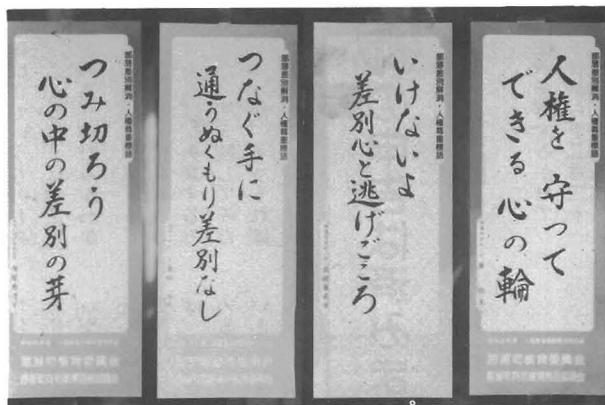 部落差別解消・人権尊重標語
人権を守って
できる心の輪
部落差別解消・人権尊重標語
いけないよ
差別心と逃げごころ
部落差別解消・人権尊重標語
つなぐ手に
通うぬくもり差別なし
部落差別解消・人権尊重標語
つみ切ろう
心の中の差別の芽